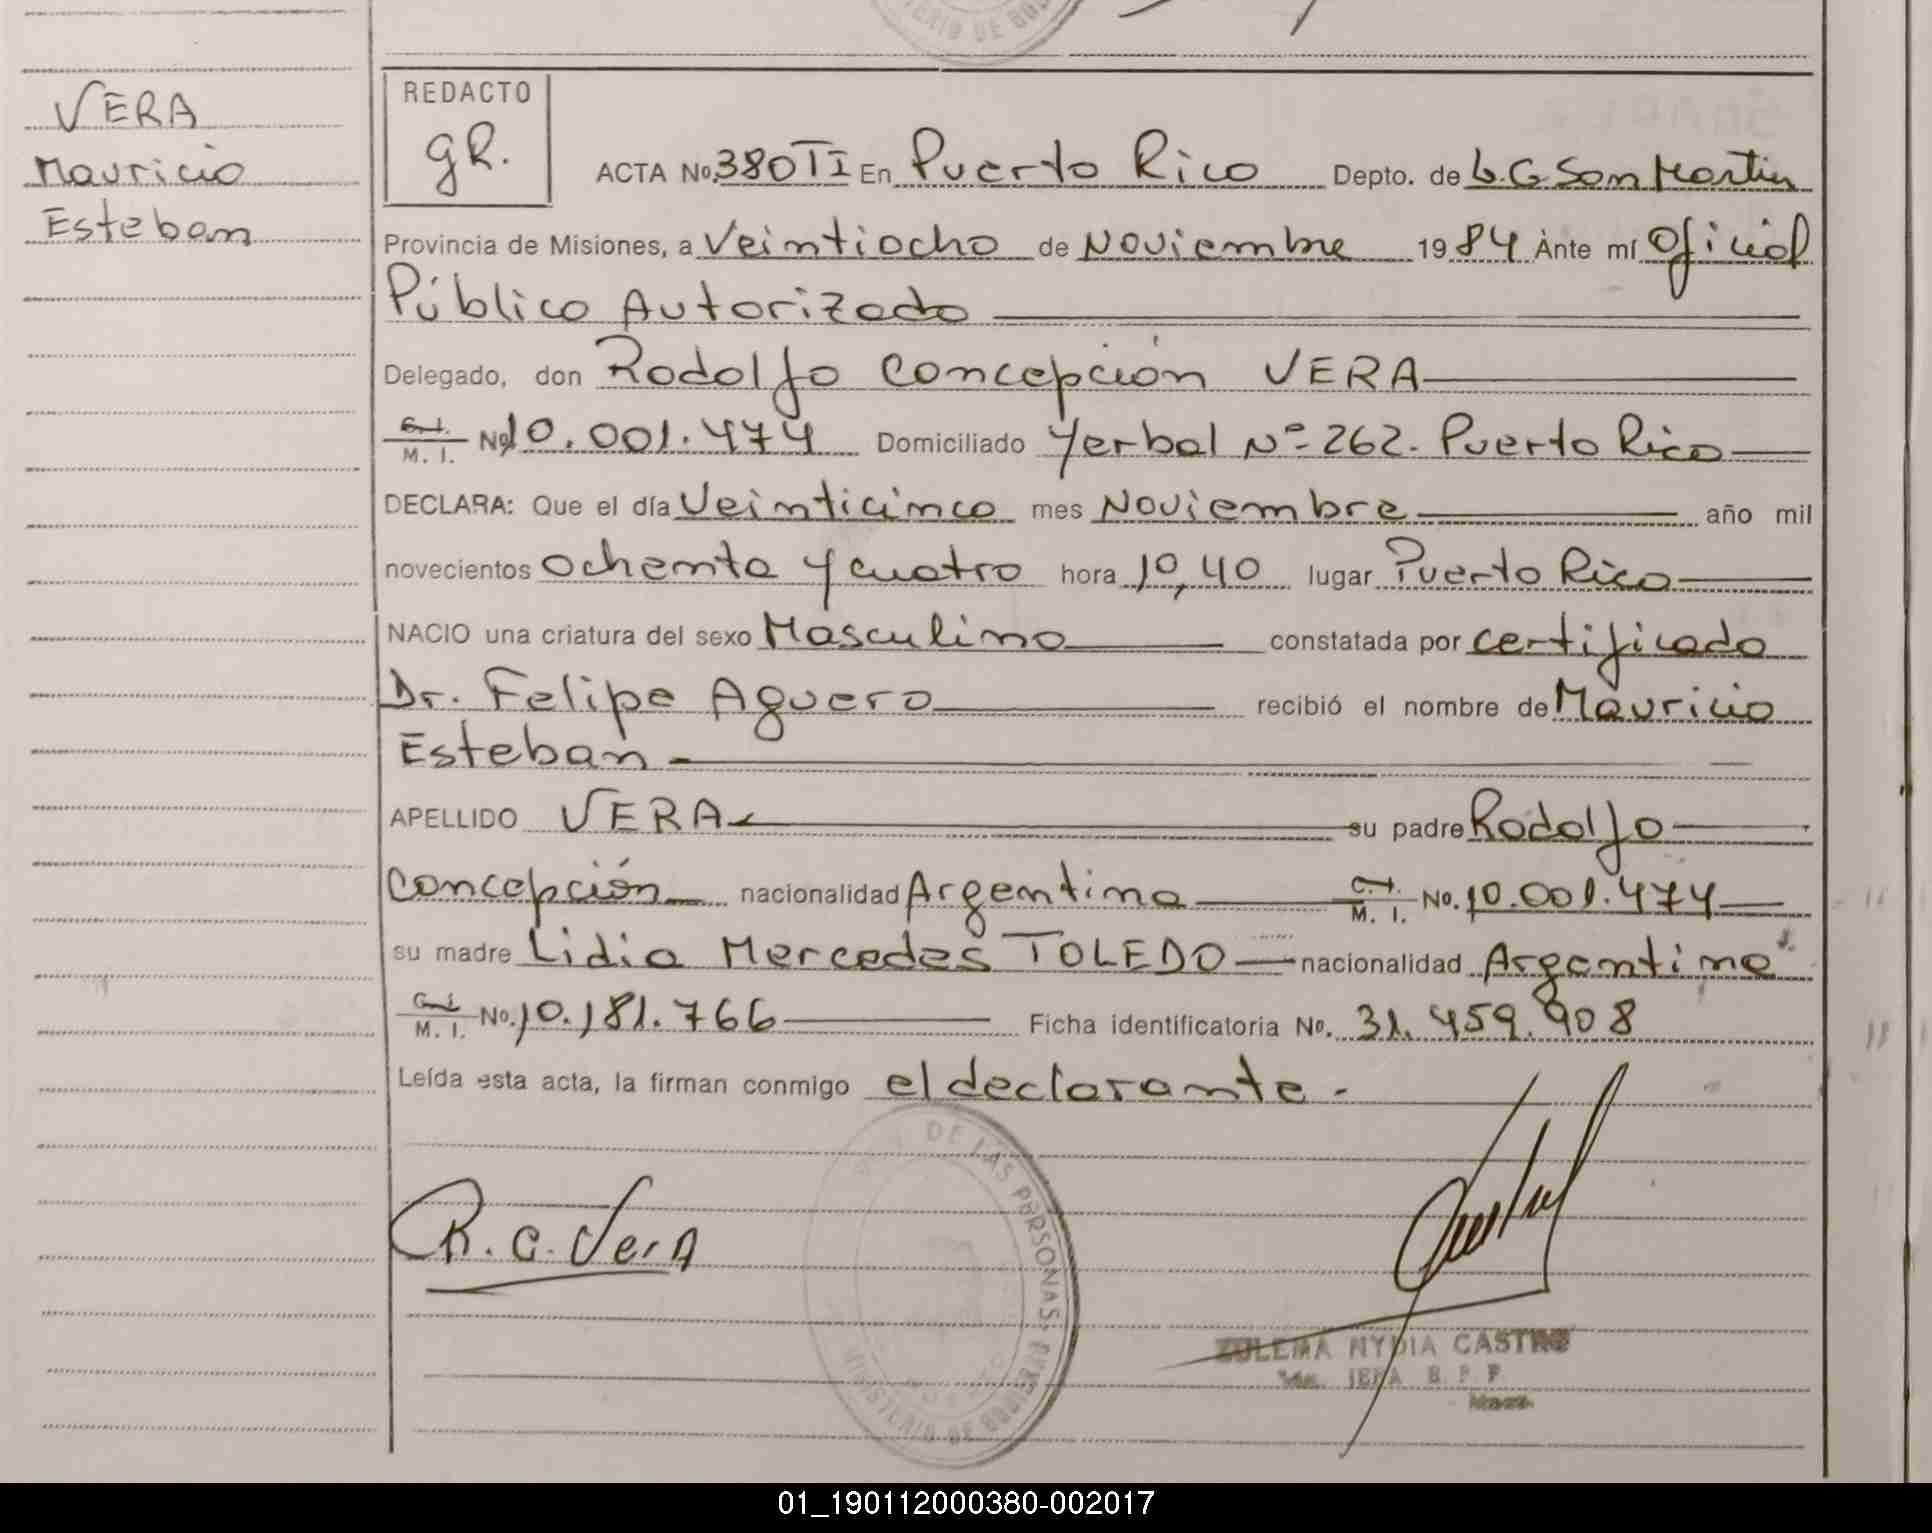 VERA
Mauricio
Esteban
REDACTO
gR.
ACTA No. 380 TI En Puerto Rico Depto. de L.G. San Martin
Provincia de Misiones, a Veintiocho de Noviembre 1984 Ante mí Oficial
Público Autorizado
Delegado, don Rodolfo Concepción VERA
C.I. M. I. No. 10.001.474 Domiciliado Yerbal Nº 262. Puerto Rico
DECLARA: Que el día Veinticinco mes Noviembre año mil
novecientos Ochenta y cuatro hora 10,40 lugar Puerto Rico
NACIO una criatura del sexo Masculino constatada por certificado
Dr. Felipe Aguero recibió el nombre de Mauricio
Esteban
APELLIDO VERA su padre Rodolfo
Concepción nacionalidad Argentina C.I. M. I. No. 10.001.474
su madre Lidia Mercedes TOLEDO nacionalidad Argentina
C.I. M. I. No. 10.181.766 Ficha identificatoria No. 31.459.908
Leída esta acta, la firman conmigo el declarante.-
DE LAS PERSONAS
MINISTERIO DE GOBIERNO
R. C. Vera
ZULEMA NYDIA CASTRO
JEFA
01_190112000380-002017